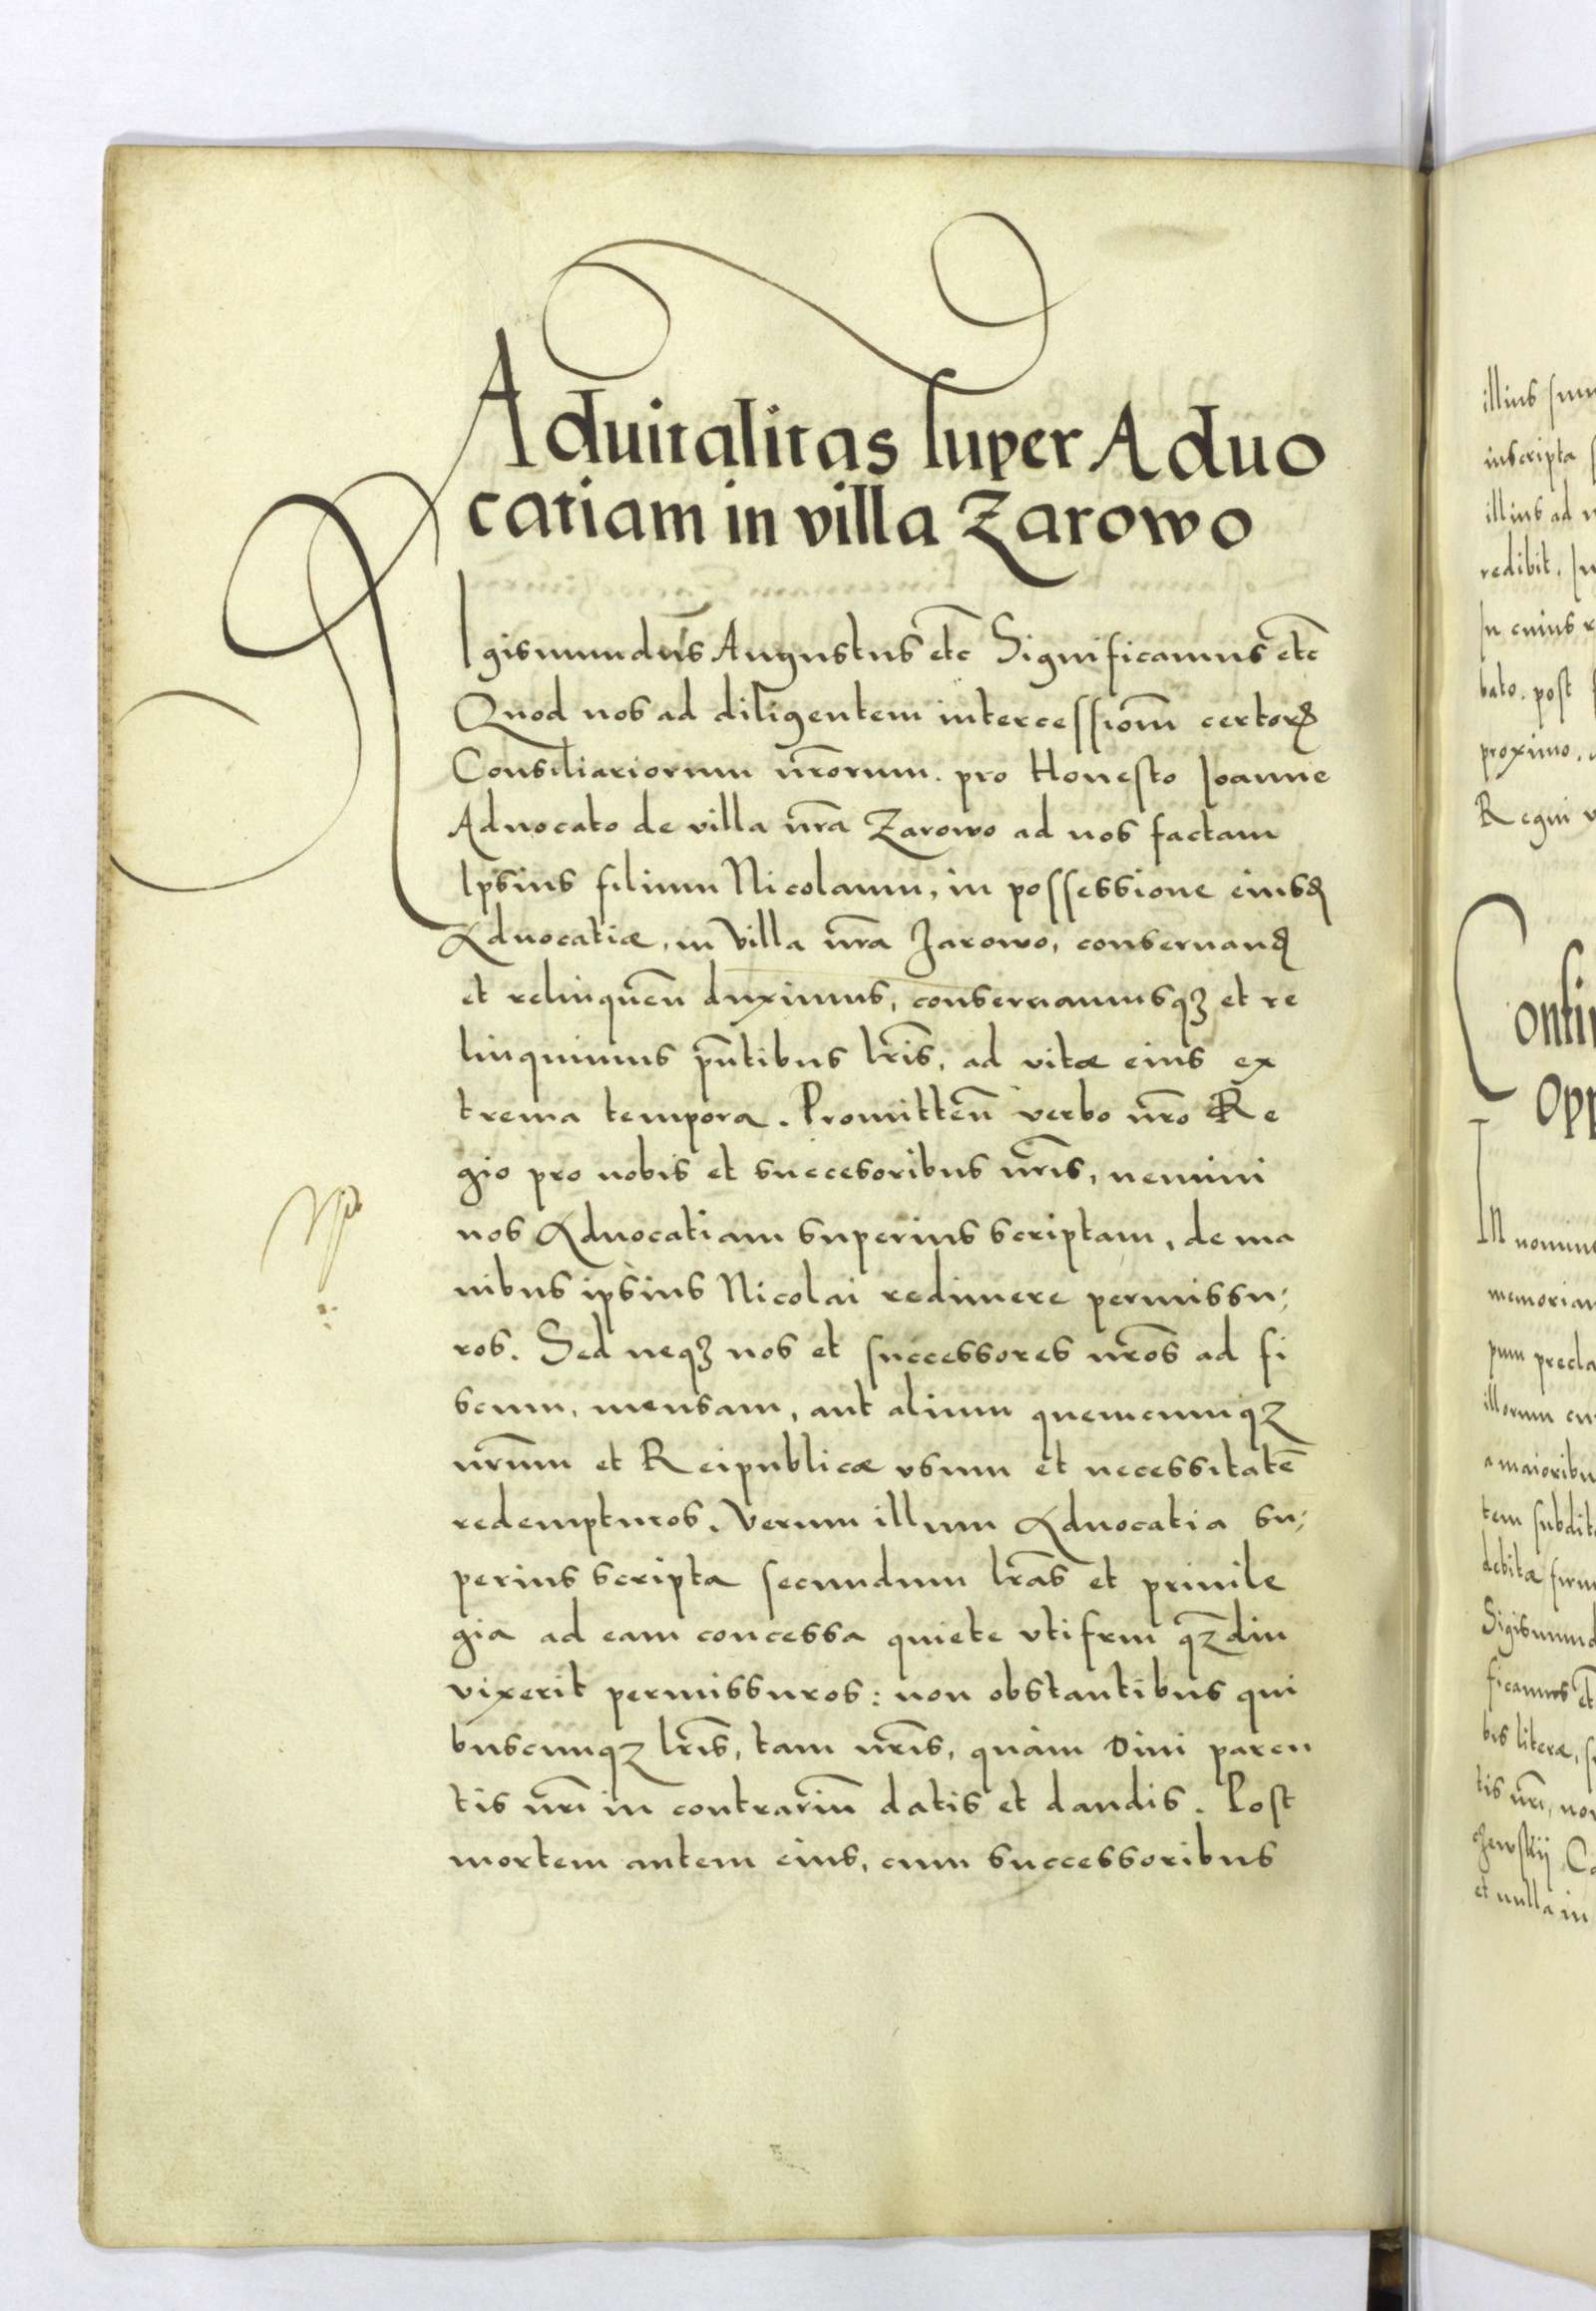 Aduitalitas super Aduo
catiam in villa Zarowo
Igismundus Augustus etc Significamus etc
Quod nos ad diligentem intercessiom̄ certorꝝ
Consiliariorum nr̄orum. pro Honesto Ioanne
Aduocato de villa nr̄a Zarowo ad nos factam
Ipsius filium Nicolaum, in possessione eiusd
Aduocatiæ, in Villa nr̄a Zarowo, conseruand
et relinquen̄ duximus, conseruamusqꝫ et re
linquimus pn̄tibus lr̄is, ad vitæ eius ex
trema tempora. Promitten̄ verbo nr̄o Re
gio pro nobis et succesoribus nr̄is, nemini
nos Aduocatiam superius scriptam, de ma
nibus ipsius Nicolai redimere permissu;
ros. Sed neqꝫ nos et successores nr̄os ad fi
scum, mensam, aut alium quemcumqꝫ
nr̄um et Reipublicæ vsum et necessitatē
redempturos. Verum illum Aduocatia su;
perius scripta secundum lr̄as et priuile
gia ad eam concessa quiete vti frui qꝫdiu
vixerit permissuros: non obstantibus qui
buscumqꝫ lr̄is, tam nr̄is, quàm Diui paren
tis nr̄i in contrariū datis et dandis. Post
mortem autem eius, cum successoribus
illius
inscripta
illius ad
redibit.
In cuius
bato. post
proximo.
Regni
Opp
In nomin
memoriam
pum
illorum
a maioribu
tem subdit
debita
Sigismund
ficamus
bis literæ,
tis nr̄i,
et nulla in